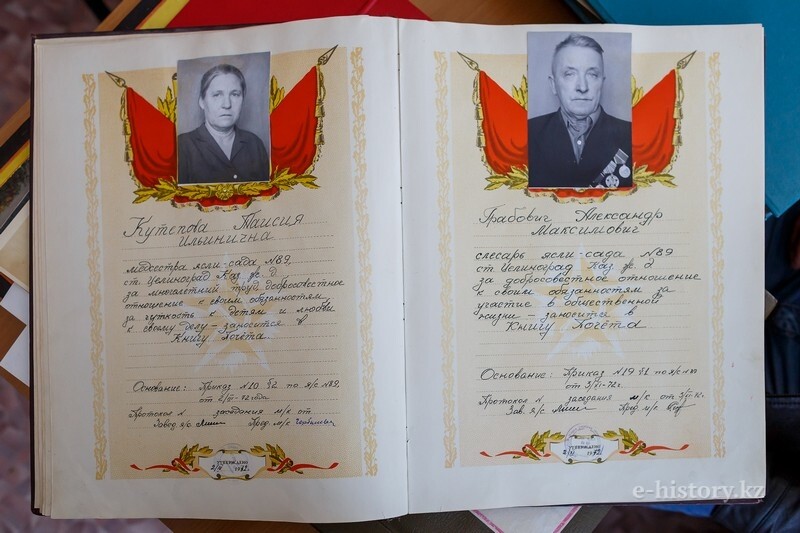 Кутепова Таисия
Ильинична
медсестра ясли-сада №89,
ст. Целиноград Каз. ж. д
за многолетний труд, добросовестное
отношение к своим обязанностям,
за чуткость к детям и любви
к своему делу – заносится в
Книгу Почёта.
Основание: Приказ №10 §2 по я/с №89.
от 2/III-72 года
Протокол № заседания м/к от
Завед. я/с Пред. м/к
УТВЕРЖДЕНО
1972 г.
Грабович Александр
Максимович
слесарь ясли-сада №89
ст. Целиноград Каз ж. д
за добросовестное отношение
к своим обязанностям за
участие в общественной
жизни – заносится в
Книгу Почёта
Основание: Приказ №19 §1 по я/с №89
от 3/VI-72г.
Протокол № заседания м/к от 3/VI-72г.
Зав. я/с Пред. м/к
УТВЕРЖДЕНО
1972 г.
e-history.kz